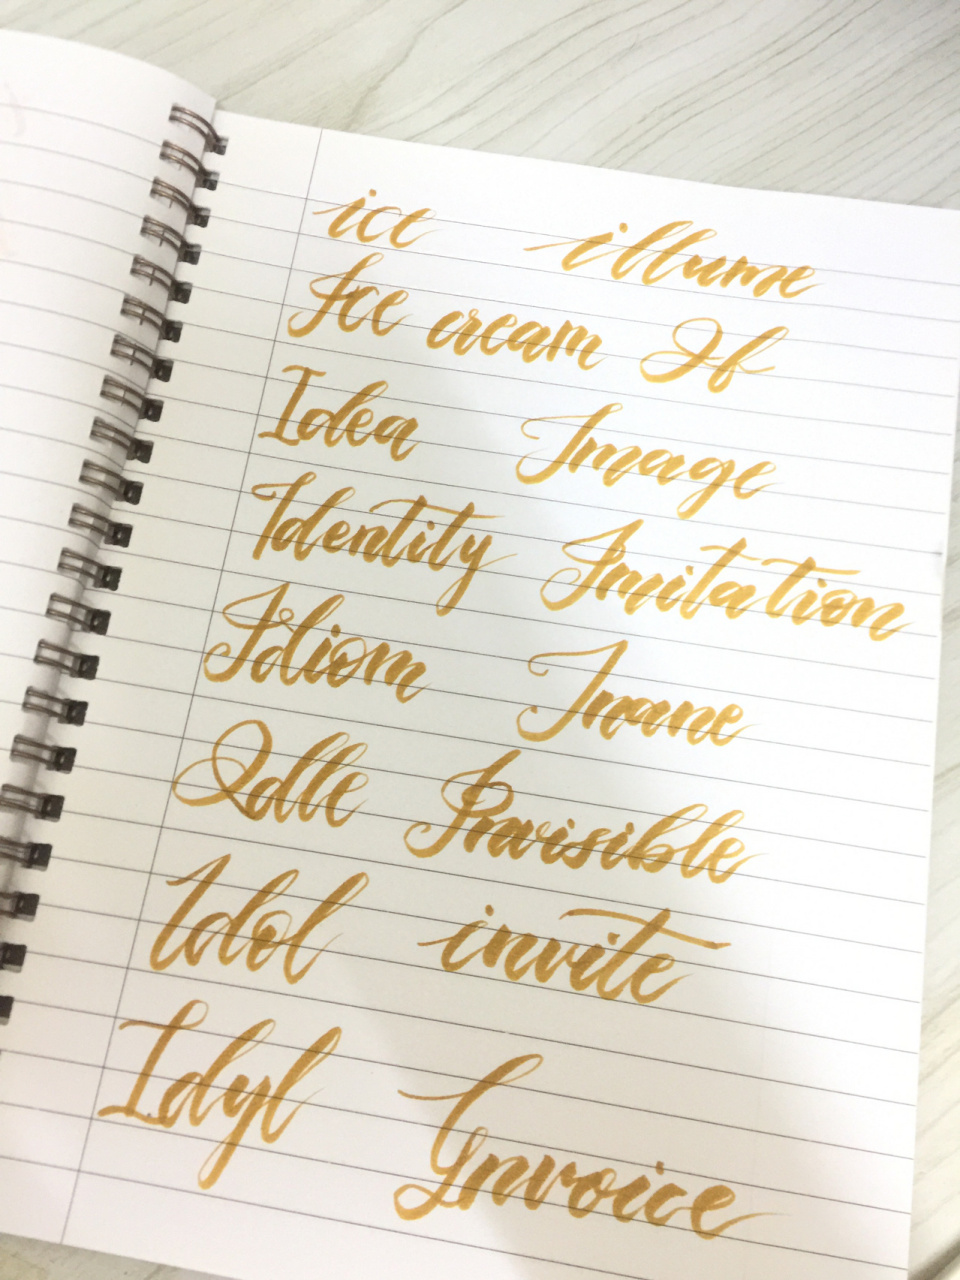 ice illume
Ice cream If
Idea Image
Identity Imitation
Idiom Inane
Idle Invisible
Idol invite
Idyl Invoice